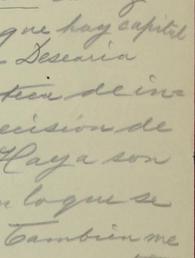 que hay capital
Desearia
tica de in=
ecisión de
Haya son
lo que se
Tambien me